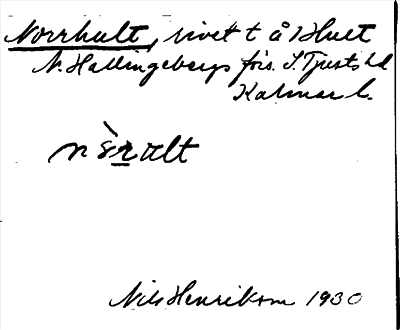 Norrhult, rivet t å 1 Hult
N. Hallingebergs förs. S. Tjusts hd
Kalmar l.
nòrαlt
Nils Henrikson 1930